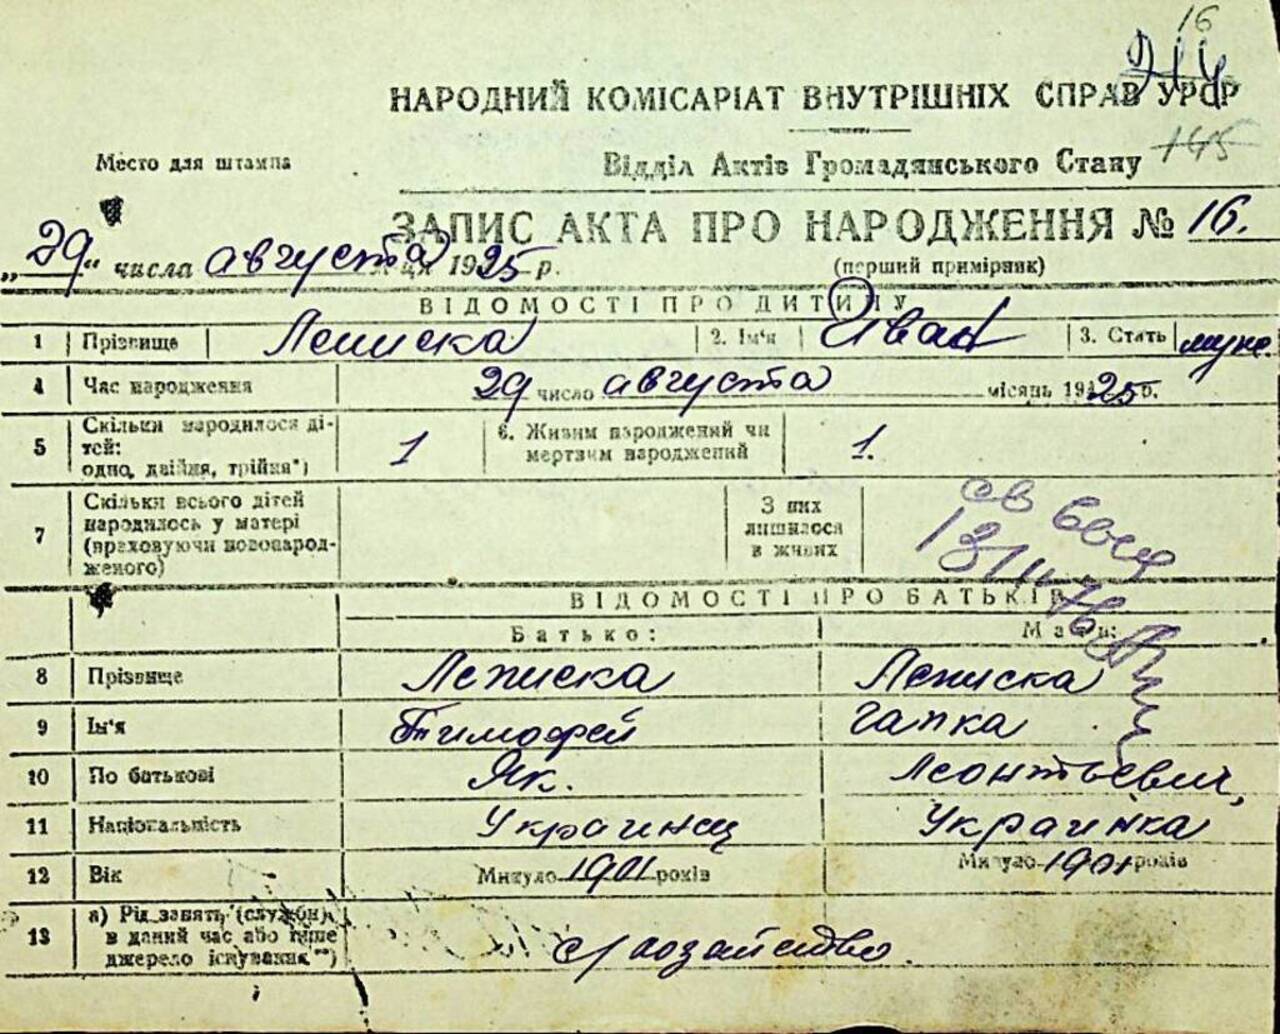 16
214
НАРОДНИЙ КОМІСАРІАТ ВНУТРІШНІХ СПРАВ УРСР
145
Место для штампа
Відділ Актів Громадянського Стану
ЗАПИС АКТА ПРО НАРОДЖЕННЯ № 16.
„29“ числа августа м-ця 1925 р. (перший примірник)
ВІДОМОСТІ ПРО ДИТИНУ
1 Прізвище Леписка 2. Ім'я Иван 3. Стать муж.
4 Час народження 29 число августа місяць 1925 р.
5 Скільки народилося ді-
тей:
одно, двійня, трійня*) 1 6. Живим народжений чи
мертвим народжений 1.
7 Скільки всього дітей
народилось у матері
(враховуючи новонарод-
женого) З них
лишилося
в живих
св
13/II-76
ВІДОМОСТІ ПРО БАТЬКІВ
Батько: Мати:
8 Прізвище Леписка Леписка
9 Ім'я Тимофей Гапка
10 По батькові Як. Леонтьевич,
11 Національність Украинец Украинка
12 Вік Минуло 1901 років Минуло 1901 років
13 а) Рід занять (служби)
в даний час або інше
джерело існування**) с/хозайство.